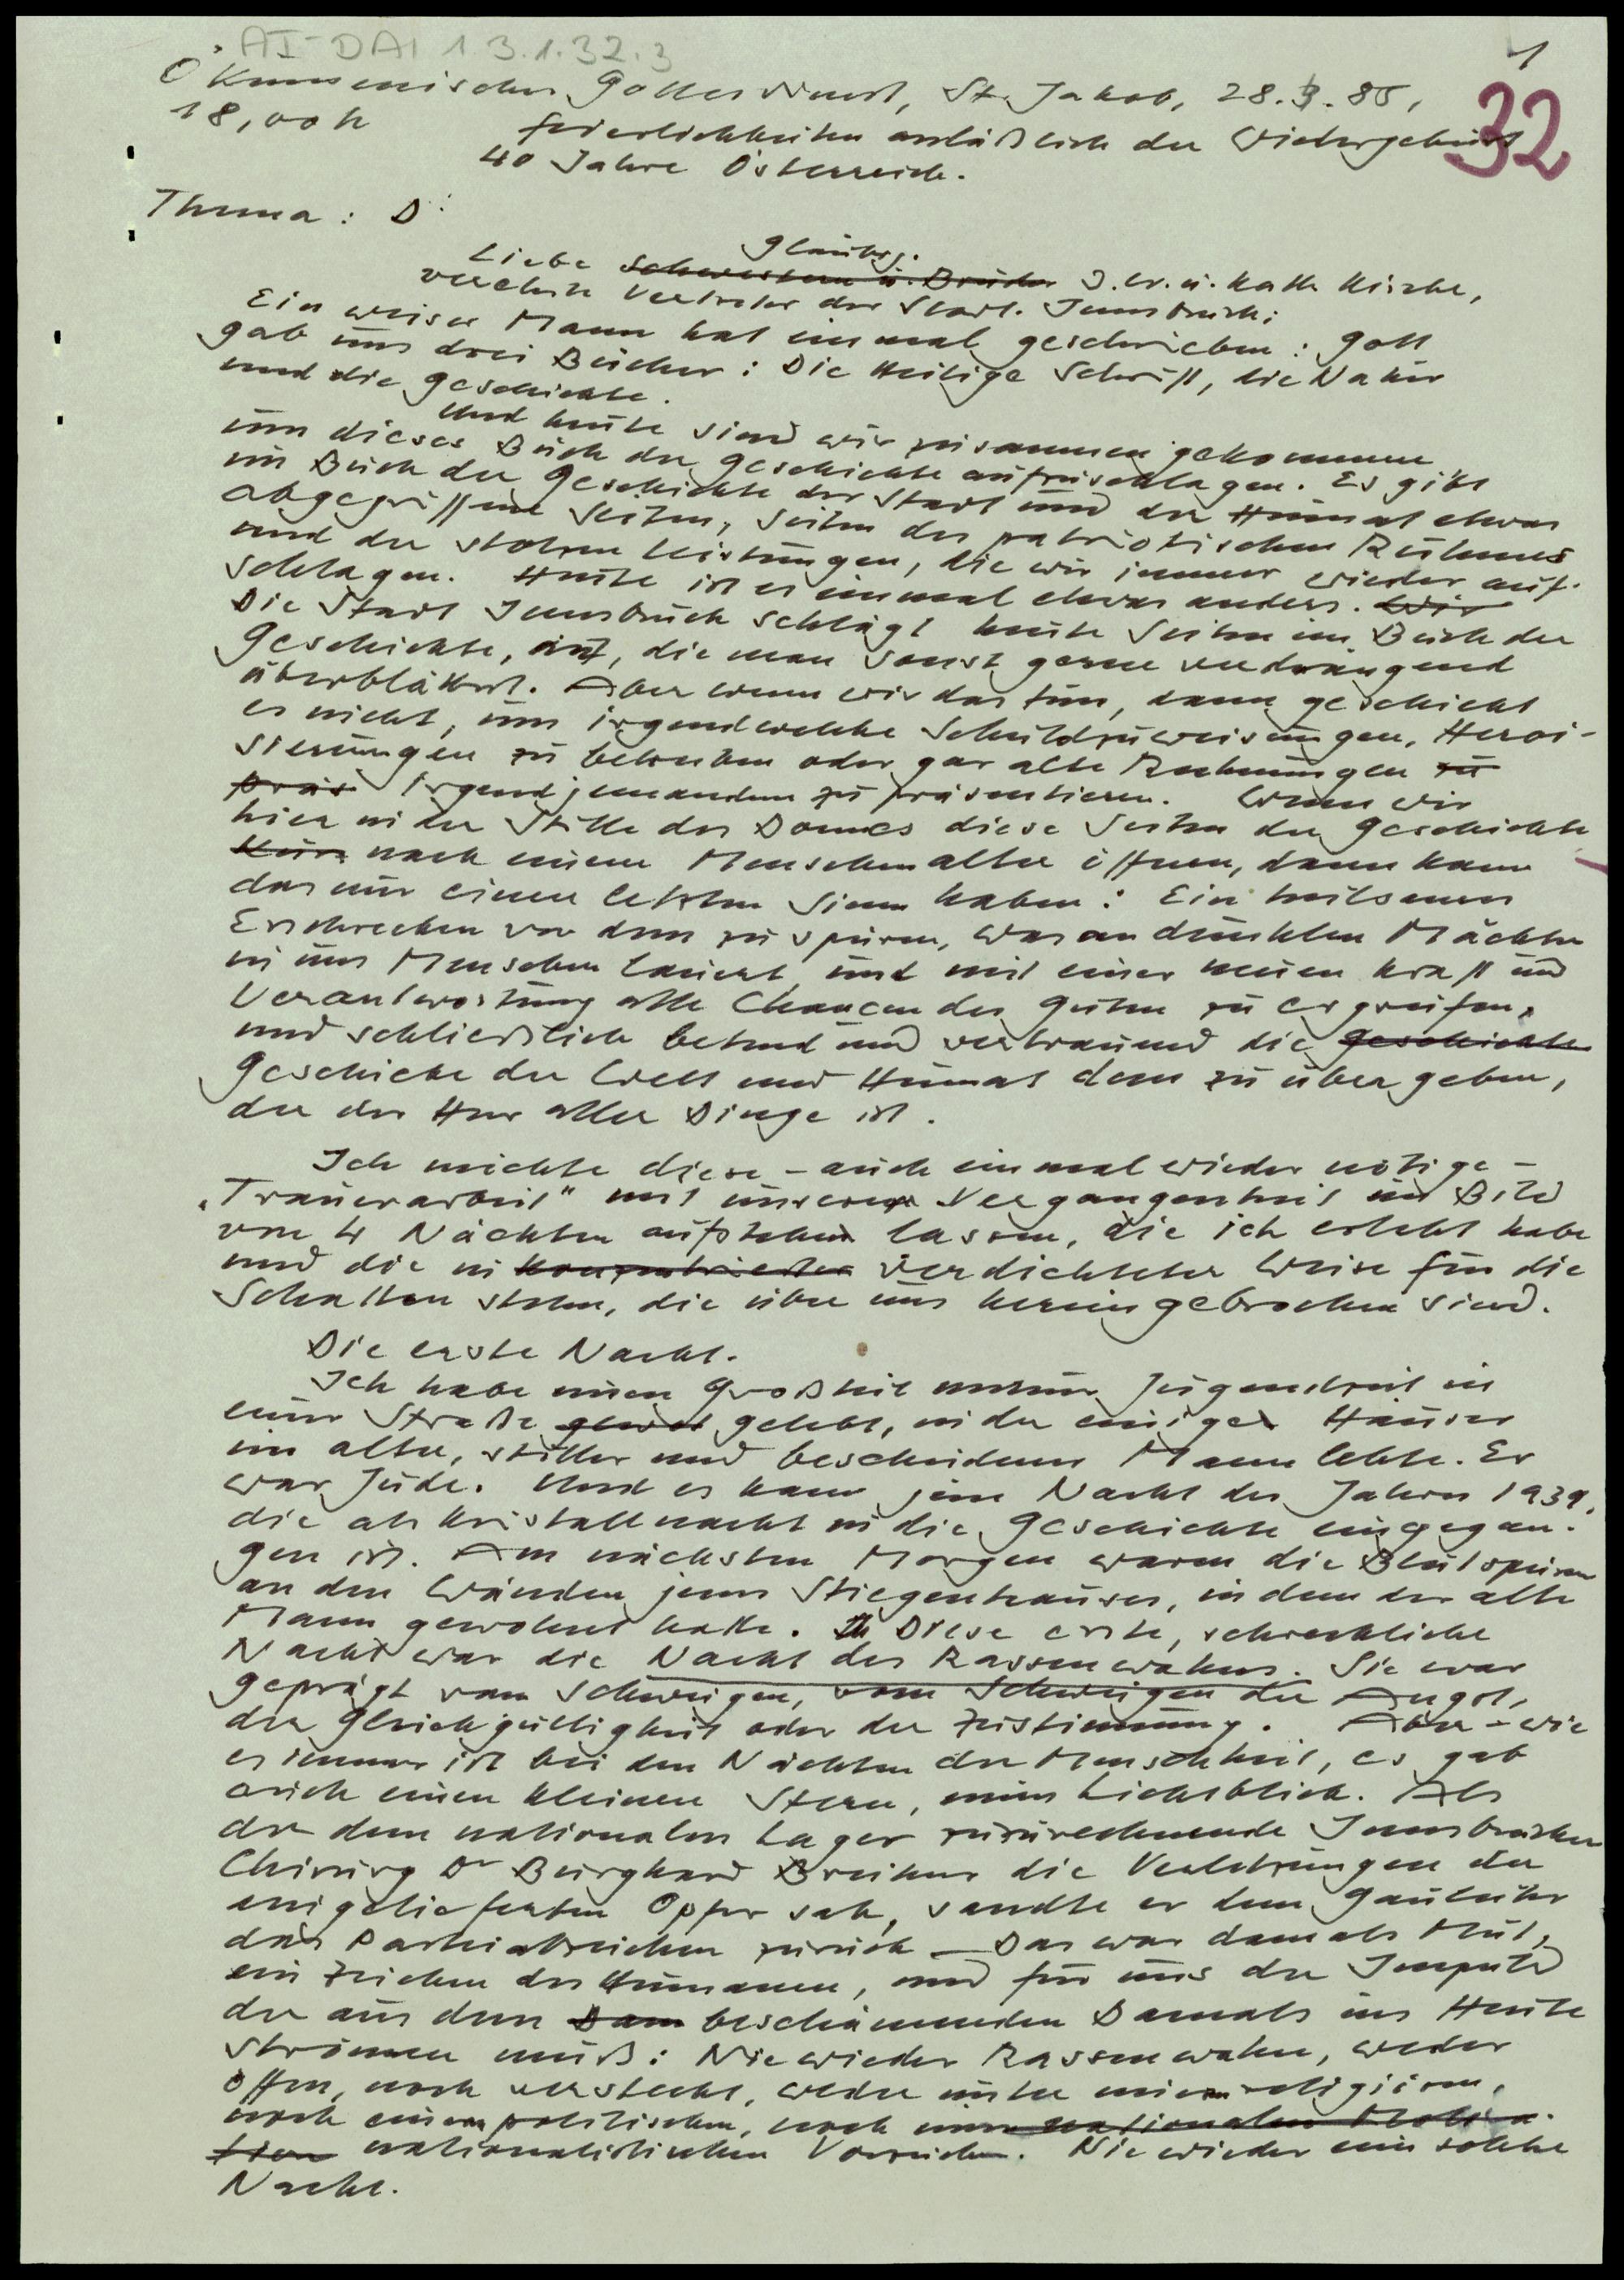 AI-DAI 1.3.1.32.3
1
32
Ökumenischer Gottesdienst, St. Jakob, 28.3.85,
18,00 h
Feierlichkeiten anläßlich der Wiedergeburt
40 Jahre Österreich.
Thema: D
Gläubige.
Liebe Schwestern u. Brüder d. ev. u. kath. Kirche,
verehrte Vertreter der Stadt Innsbruck:
Ein weiser Mann hat einmal geschrieben: Gott
gab uns drei Bücher: Die Heilige Schrift, die Natur
und die Geschichte.
Und heute sind wir zusammengekommen
um dieses Buch der Geschichte aufzuschlagen. Es gibt
im Buch der Geschichte der Stadt und der Heimat etwas
abgegriffene Seiten, Seiten des patriotischen Ruhmes
und der stolzen Leistungen, die wir immer wieder auf-
schlagen. Heute ist es einmal etwas anders. Wir
Die Stadt Innsbruck schlägt heute Seiten im Buch der
Geschichte, auf, die man sonst gerne verdrängend
überblättert. Aber wenn wir das tun, dann geschieht
es nicht, um irgendwelche Schuldzuweisungen, Heroi-
sierungen zu betreiben oder gar alte Rechnungen zu
präs irgendjemandem zu präsentieren. Wenn wir
hier in der Stille des Domes diese Seiten der Geschichte
nach einem Menschenalter öffnen, dann kann
das nur einen letzten Sinn haben: Ein heilsames
Erschrecken vor dem zu spüren, was an dunklen Mächten
in uns Menschen lauert und mit einer neuen Kraft und
Verantwortung alle Chancen des Guten zu ergreifen,
und schließlich betend und vertrauend die Geschichte
Geschicke der Welt und Heimat dem zu übergeben,
der der Herr aller Dinge ist.
Ich möchte diese – auch einmal wieder nötige –
„Trauerarbeit" mit unserer Vergangenheit im Bild
von 4 Nächten aufstehen lassen, die ich erlebt habe
und die in konzentrierter verdichteter Weise für die
Schatten stehen, die über uns hereingebrochen sind.
Die erste Nacht.
Ich habe einen Großteil meiner Jugendzeit in
einer Straße gelebt, in der einige Häuser
ein alter, stiller und bescheidener Mann lebte. Er
war Jude. Und es kam jene Nacht des Jahres 1939,
die als Kristallnacht in die Geschichte eingegan-
gen ist. Am nächsten Morgen waren die Blutspuren
an den Wänden jenes Stiegenhauses, in dem der alte
Mann gewohnt hatte. Diese erste, schreckliche
Nacht war die Nacht des Rassenwahns. Sie war
geprägt vom Schweigen, vom Schweigen der Angst,
der Gleichgültigkeit oder der Zustimmung. Aber – wie
es immer ist bei den Nächten der Menschheit, es gab
auch einen kleinen Stern, einen Lichtblick. Als
der dem nationalen Lager zuzurechnende Innsbrucker
Chirurg Dr Burghard Breitner die Verletzungen der
eingelieferten Opfer sah, sandte er dem Gauleiter
das Parteiabzeichen zurück – Das war damals Mut,
ein Zeichen des Humanen, und für uns der Impuls
der aus dem Dam beschämenden Damals ins Heute
strömen muß: Nie wieder Rassenwahn, weder
offen, noch versteckt, weder unter einem religiösen,
noch einem politischen, noch einer nationalen Motiva-
tion nationalistischen Vorzeichen. Nie wieder eine solche
Nacht.